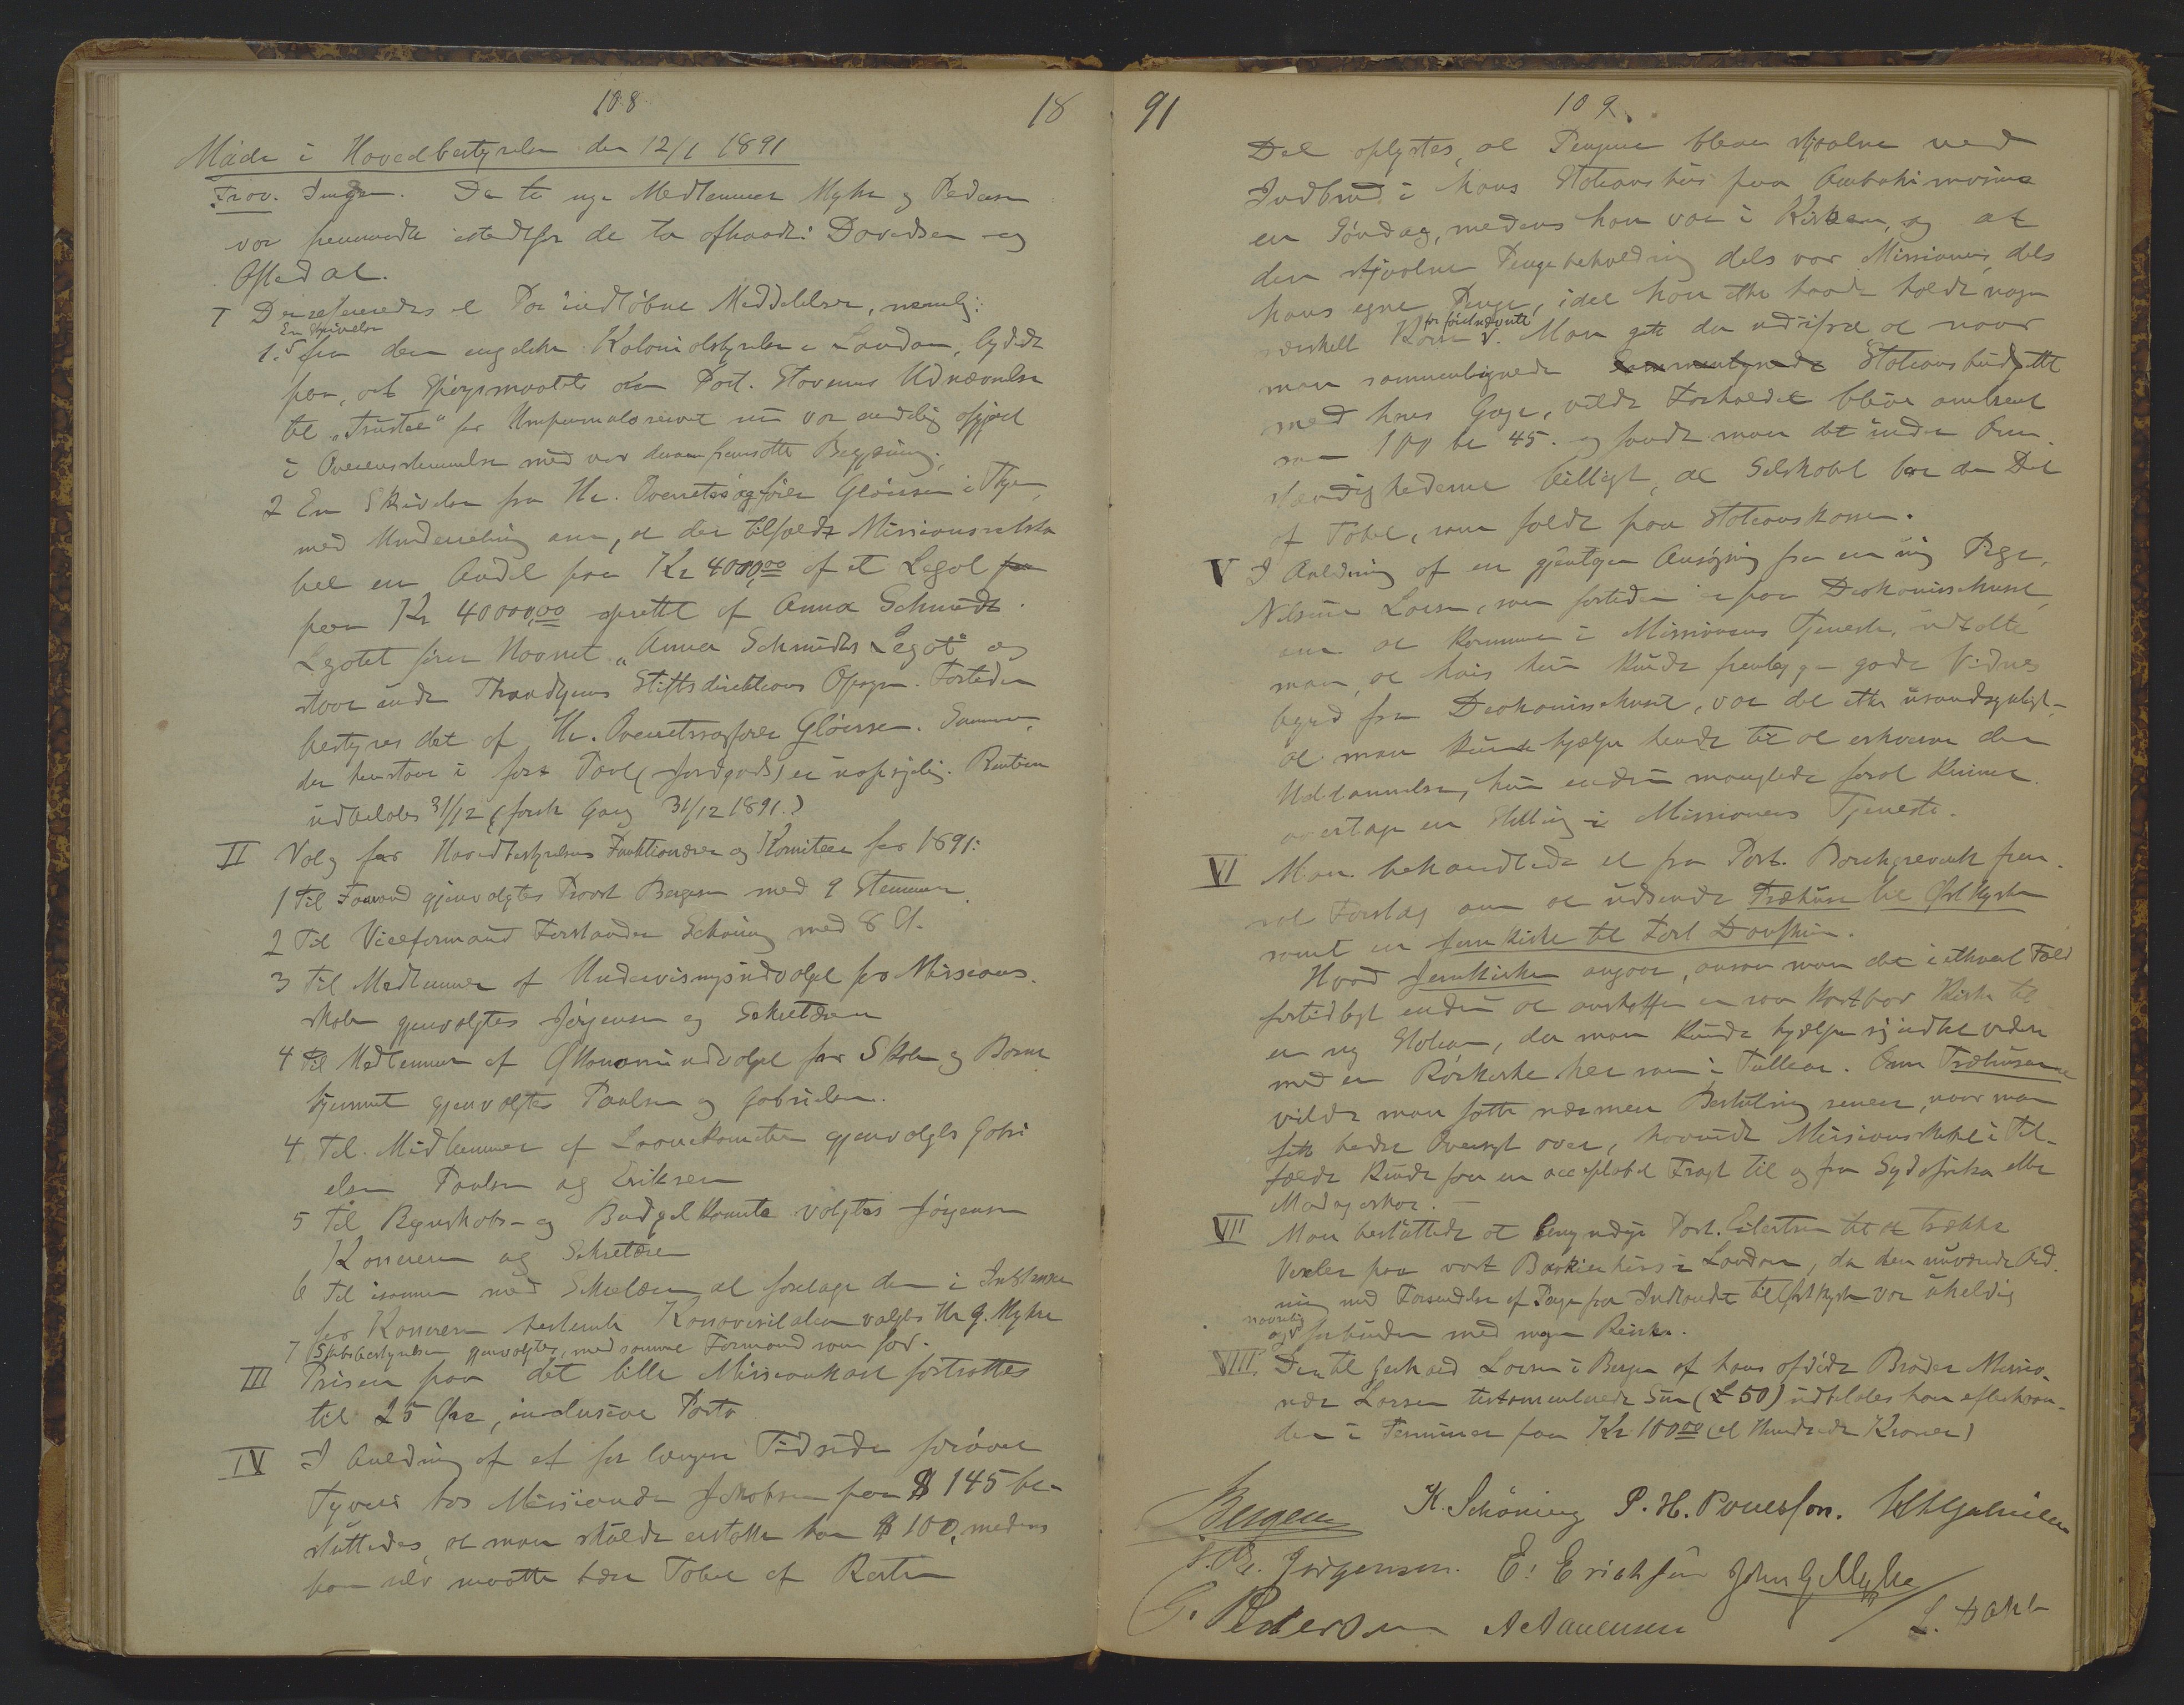 108
18
Møde i Hovedbestyrelsen den 12/1 1891
Frav. Ingen. De to nye Medlemmer Myhre og Pedersen
var fremmødte istedetfor de to afholdte: Davidsen og
Oftedal.
I Der refereredes et Par indløbne Meddelelser, nemlig:
En Skrivelse
1. fra den engelske Kolonialstyrelse i London, lydende
paa, at Spørgsmaalet om Past. Stavems Udnævnelse
til "Trustee" for Umpumulo reserve nu var endelig afgjort
i Overensstemmelse med vor derom fremsatte Begjæring.
2 En Skrivelse fra Hr. Overretssagfører Gløersen i Thjem
med Underretning om, at der tilfaldt Missionsselska
bet en Andel paa Kr 4000,00 af et Legat
paa Kr 40000,00 oprettet af Anna Schmidt.
Legatet fører Navnet "Anna Schmidts Legat" og
staar under Throndhjems Stiftsdirektions Opsyn. Fortiden
bestyres det af Hr. Overretssagfører Gløersen. Summen,
der henstaar i fast Pant (Jordgods) er uopsigelig. Renten
udbetales 31/12 (første Gang 31/12 1891.)
II Valg for Hovedbestyrelsens Funktionærer og Komiteer for 1891:
1 Til Formand gjenvalgtes Provst Bergesen med 9 Stemmer.
2 Til Viceformand Forstander Schøning med 8 St.
3 Til Medlemmer af Undervisningsudvalget for Missions-
skolen gjenvalgtes Jørgensen og Sekretæren
4 Til Medlemmer af Økonomiudvalget for Skolen og Barne
hjemmet gjenvalgtes Paulsen og Gabrielsen.
4 Til Medlemmer af Laanekomiteen gjenvalgtes Gabri
elsen Paulsen og Eriksen
5 Til Regnskabs- og Budgetkomite valgtes Jørgensen
Kasserern og Sekretæren
6 Til isammen med Sekretæren at foretage den i Instruxen
for Kassereren bestemte Kassavisitation valgtes Hr G. Myhre
7 Skibsbestyrelsen gjenvalgtes, med samme Formand som før.
III Prisen paa det lille Missionskart fastsattes
til 25 Øre, inclusive Porto
IV I Anledning af et for længere Tid siden forøvet
Tyveri hos Missionær Jakobsen paa $ 145 be-
sluttedes, at man skulde erstatte ham $ 100, medens
han selv maatte bære Tabet af Resten
91
109.
Det oplystes, at Pengene bleve stjaalne ved
Indbrud i hans Stationshus paa Ambohimasina
en Søndag, medens han var i Kirken, og at
den stjaalne Pengebeholdning dels var Missionens, dels
hans egne Penge, idet han ikke havde holdt nogen
for førstnævnte
særskelt Kasse. Man gik da ud ifra at naar
man sammenlignede Stationsbudgettet
med hans Gage, vilde Forholdet blive omtrent
som 100 til 45. og fandt man det under Om-
stændighederne billigt, at Selskabet bar den Del
af Tabet, som faldt paa Stationskassen.
V I Anledning af en gjentagen Ansøgning fra en ung Pige,
Nilsine Larsen, som fortiden er paa Diakonissehuset,
om at komme i Missionens Tjeneste, udtalte
man, at hvis hun kunde fremlægge gode Vidnes
byrd fra Diakonissehuset, var det ikke usandsynligt,
at man kunde hjælpe hende til at erhverve den
Uddannelse, hun endnu manglede forat kunne
overtage en Stilling i Missionens Tjeneste.
VI Man behandlede et fra Past. Borchgrevink frem-
sat Forslag om at udsende Træhuse til Østkysten
samt en Jernkirke til Fort Dauphin.
Hvad Jernkirken angaar, ansaa man det i ethvert Fald
fortidligt endnu at anskaffe en saa kostbar Kirke til
en ny Station, da man kunde hjælpe sig indtil videre
med en Rørkirke her som i Tullear. Om Træhusene
vilde man fatte nærmere Beslutning senere, naar man
fik bedre Oversigt over, hvorvidt Missionsskibet i Til-
fælde kunde faa en acceptabel Fragt til og fra Sydafrika eller
Madagaskar.
VII Man besluttede at bemyndige Past. Eilertsen til at trække
Vexler paa vort Bankierhus i London, da den nuværende Ord-
ning med Forsendelse af Penge fra Indlandet til Østkysten var uheldig
navnlig
og forbunden med megen Risiko.
VIII. Den til Gerhard Larsen i Bergen af hans afdøde Broder Missio-
nær Larsen testamenterede Sum (£ 50) udbetales ham efterhaan-
den i Terminer paa Kr 100,00 (et Hundrede Kroner)
Bergesen K. Schöning P. H. Povelsson. Gabrielsen
Jørgensen. E. Erichsen John G Myhre
G. Pedersen L. Dahle